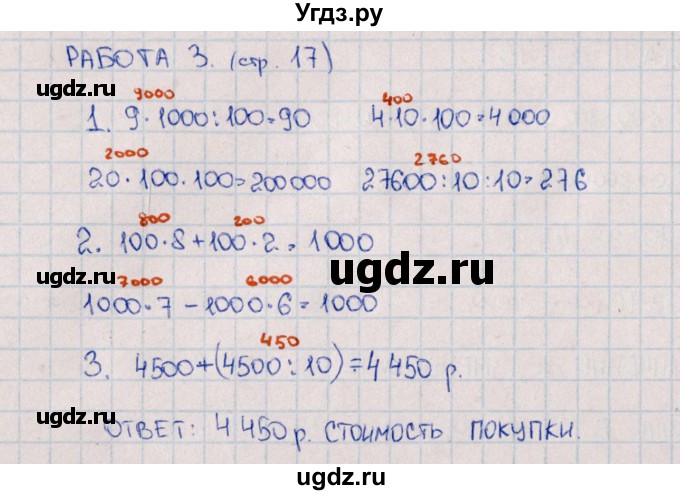 Угдз.ру
РАБОТА 3. (стр. 17)
ugdz.ru ugdz.ru
9000 400
1. 9·1000:100=90 4·10·100=4000
2000 2760
20·100·100=200000 27600:10:10=276
ugdz.ru
800 200
2. 100·8+100·2=1000
ugdz.ru
ugdz.ru ugdz.ru
7000 6000
1000·7-1000·6=1000
450
3. 4500+(4500:10)=4450 р.
ugdz.ru ugdz.ru
ОТВЕТ: 4450 р. СТОИМОСТЬ ПОКУПКИ.
ugdz.ru